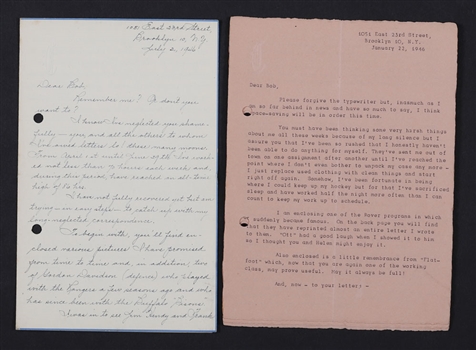 1051 East 23rd Street,
Brooklyn 10, N.Y.
July 2, 1946
Dear Bob,
Remember me? Or don't you
want to?
I know I've neglected you shame-
fully - you and all the others to whom
I've owed letters lo! these many moons.
From April 1st until June 28th I've worked
no less than 72 hours each week and,
during this period, have reached an all-time
high of 96 hrs.
I have not fully recovered but am
trying in easy steps to catch up with my
long-neglected correspondence.
To begin with, you'll find en-
closed various pictures I have received
from time to time and, in addition, two
of Gordon Davidson (defense) who played
with the Rangers a few seasons ago and who
has since been with the Buffalo "Bisons"
I was in to see Jim Hendy and Frank
1051 East 23rd Street,
Brooklyn 10, N.Y.
January 23, 1946
Dear Bob,
Please forgive the typewriter but, inasmuch as I
am so far behind in news and have so much to say, I think
space-saving will be in order this time.
You must have been thinking some very harsh things
about me all these weeks because of my long silence but I
assure you that I've been so rushed that I honestly haven't
been able to do anything for myself. They've sent me out of
town on one assignment after another until I've reached the
point where I don't even bother to unpack my case any more -
I just replace used clothing with clean things and start
right off again. Somehow, I've been fortunate in being
where I could keep up my hockey but for that I've sacrificed
sleep and have worked half the night more often than I can
count to keep my work up to schedule.
I am enclosing one of the Rover programs in which
I suddenly became famous. On the back page you will find
that they have reprinted almost an entire letter I wrote
to them. "Oti" had a good laugh when I showed it to him
so I thought you and Helen might enjoy it.
Also enclosed is a little remembrance from "Flat-
foot" which, now that you are again one of the working
class, may prove useful. May it always be full!
And, now - to your letter! -